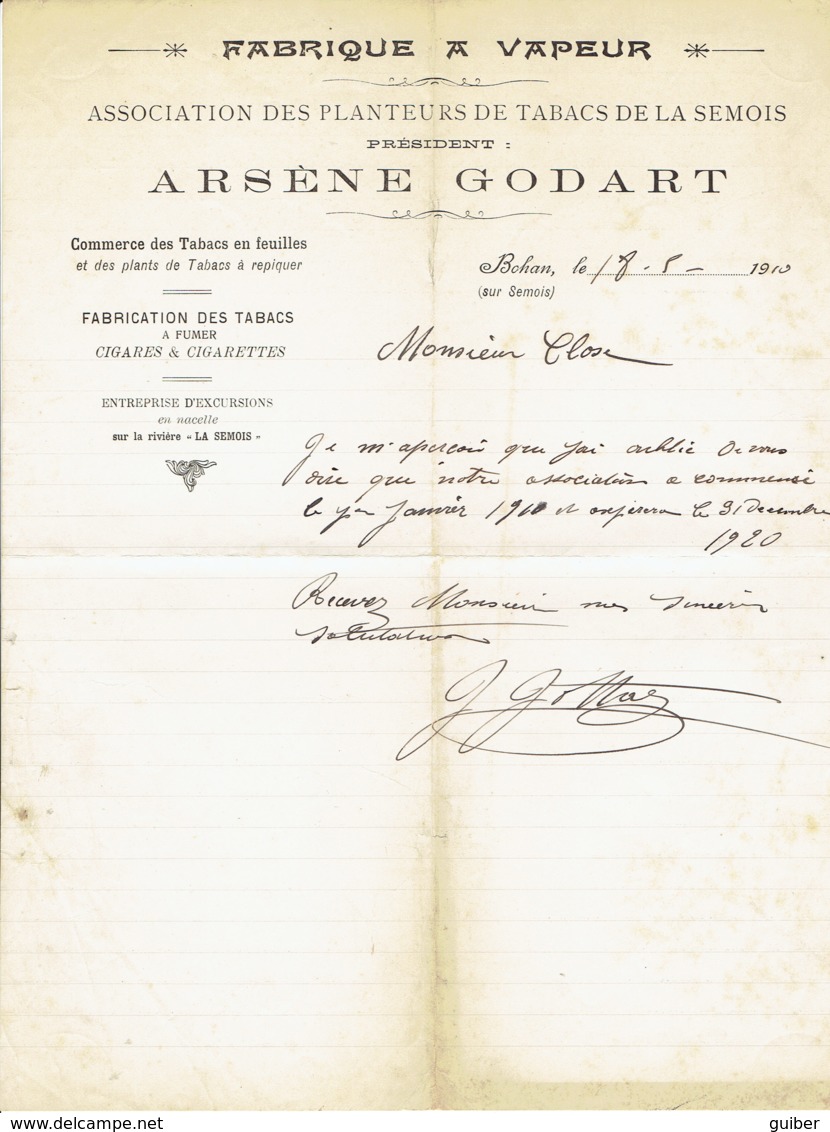 FABRIQUE A VAPEUR
ASSOCIATION DES PLANTEURS DE TABACS DE LA SEMOIS
PRÉSIDENT :
ARSÈNE GODART
Commerce des Tabacs en feuilles
et des plants de Tabacs à repiquer
FABRICATION DES TABACS
A FUMER
CIGARES & CIGARETTES
ENTREPRISE D'EXCURSIONS
en nacelle
sur la rivière « LA SEMOIS »
Bohan, le 18-5- 1910
(sur Semois)
Monsieur Close
Je m'aperçoi que j'ai oublié de vous
dire que notre association a commencé
le 1er Janvier 1910 et expirera le 31 Decembre
1920
Recevez Monsieur mes sincères
salutations